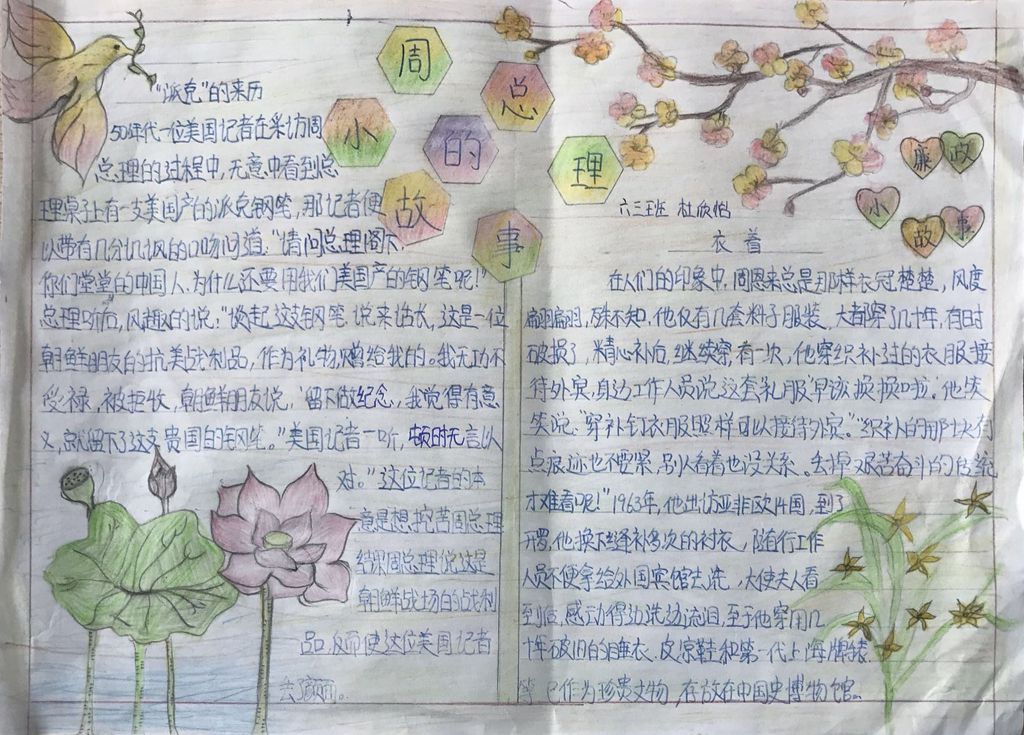 周总理的小故事
廉政小故事
"派克"的来历
50年代一位美国记者在采访周
总理的过程中,无意中看到总
理桌子上有一支美国产的派克钢笔,那记者便
以带有几分讥讽的口吻问道:"请问总理阁下,
你们堂堂的中国人、为什么还要用我们美国产的钢笔呢!"
总理听后,风趣的说:"谈起这支钢笔,说来话长,这是一位
朝鲜朋友的抗美战利品,作为礼物赠给我的。我无功不
受禄,被拒收,朝鲜朋友说,留下做纪念,我觉得有意
义,就留下了这支贵国的钢笔。"美国记者一听,顿时无言以
对。"这位记者的本
意是想挖苦周总理
结课周总理说这是
朝鲜战场的战利
品,反而使这位美国记者
丢颜面。
六三班 杜欣怡
衣着
在人们的印象中,周恩来总是那样衣冠楚楚,风度
翩翩,殊不知,他仅有几套料子服装,大都穿了几十年,有时
破损了,精心补后,继续穿,有一次,他穿织补过的衣服接
待外宾,身边工作人员说这套礼服早该换换啦。他笑
笑说:"穿补钉衣服照样可以接待外宾。"织补的那块有
点痕迹也不要紧,别人看着也没关系。丢掉艰苦奋斗的传统
才难看呢!"1963年,他出访亚非欧14国,到了
开罗,他换下缝补多次的衬衣,随行工作
人员不便拿给外国宾馆去洗,大使夫人看
到后,感动得边洗边流泪,至于他穿用几
十年破旧的睡衣、皮凉鞋和第一代上海牌表
等已作为珍贵文物,存放在中国史博物馆。